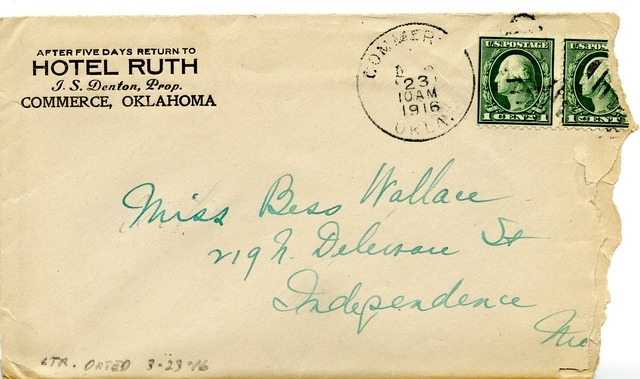 AFTER FIVE DAYS RETURN TO
HOTEL RUTH
J. S. Denton, Prop.
COMMERCE, OKLAHOMA
COMMER
23
10 AM
1916
OKLA.
U.S. POSTAGE
1 CENT 1
U.S. POS
1 CENT
Miss Bess Wallace
219 N. Delewau St
Independence
LTR. DATED 3-23-16